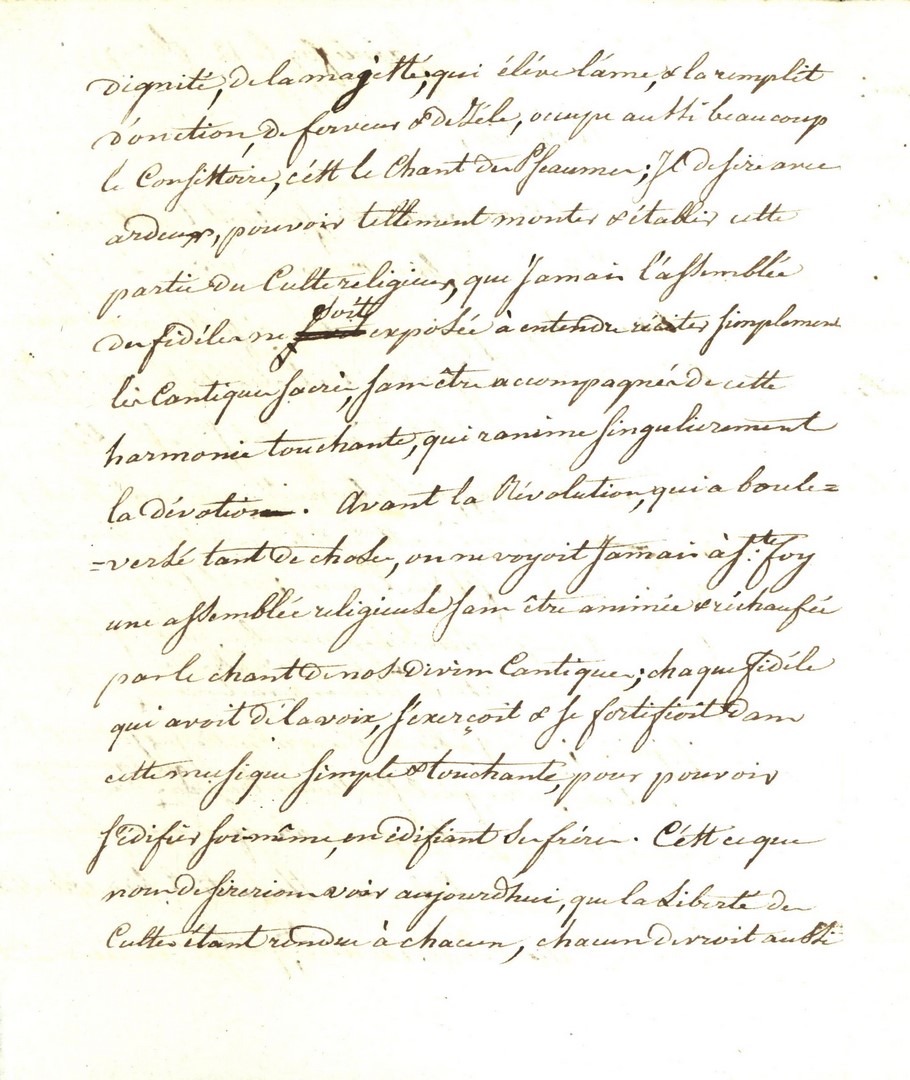 dignité, de la majesté, qui élève l'âme, & la remplit
d'onction, de ferveur & de Zéle, occupe aussi beaucoup
le Consistoire, c'est le Chant des Pseaumes; Il desire avec
ardeur, pouvoir tellement monter & établir cette
partie du Culte religieux, que Jamais l'assemblée
des fidéles ne soit exposée à entendre réciter simplement
les Cantiques sacrés, sans être accompagnés de cette
harmonie touchante, qui ranime singulierement
la dévotion. Avant la Révolution, qui a boule=
=versé tant de choses, on ne voyoit Jamais à Ste. Foy
une assemblée religieuse sans être animée & réchaufée
par le chant de nos divins Cantiques; chaque fidéle
qui avoit de la voix, s'exerçoit & se fortifioit dans
cette musique simple & touchante, pour pouvoir
s'édifier soi-même, en édifiant ses fréres. C'est ce que
nous desirerions voir aujourd'hui, que la Liberté des
Cultes étant rendue à chacun, chacun devroit aussi